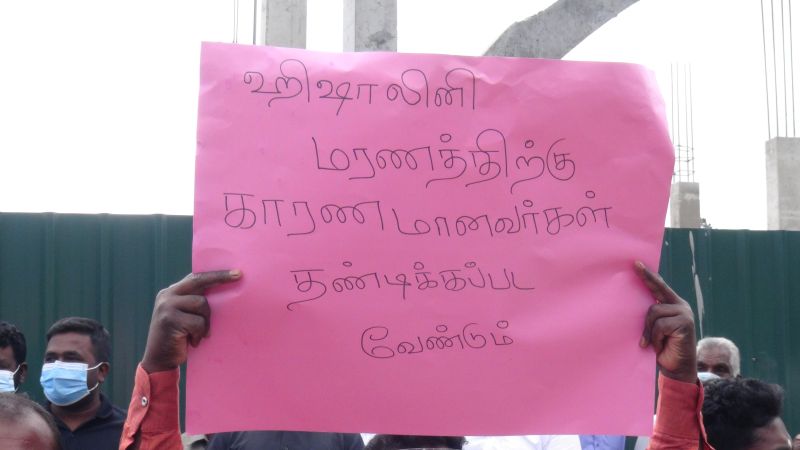 ஹிஷாலினி
மரணத்திற்கு
காரணமானவர்கள்
தண்டிக்கப்பட
வேண்டும்